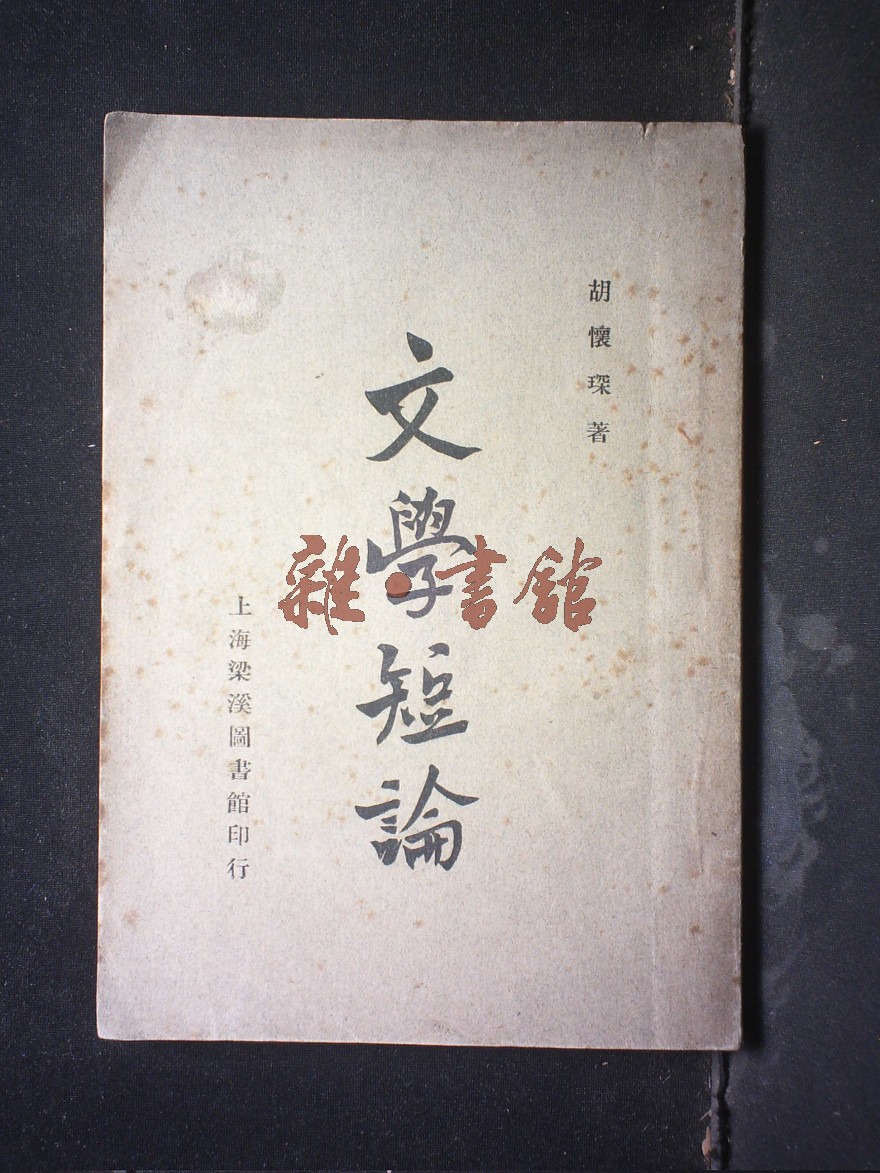 胡懷琛著
文學短論
上海梁溪圖書館印行
雜·書館